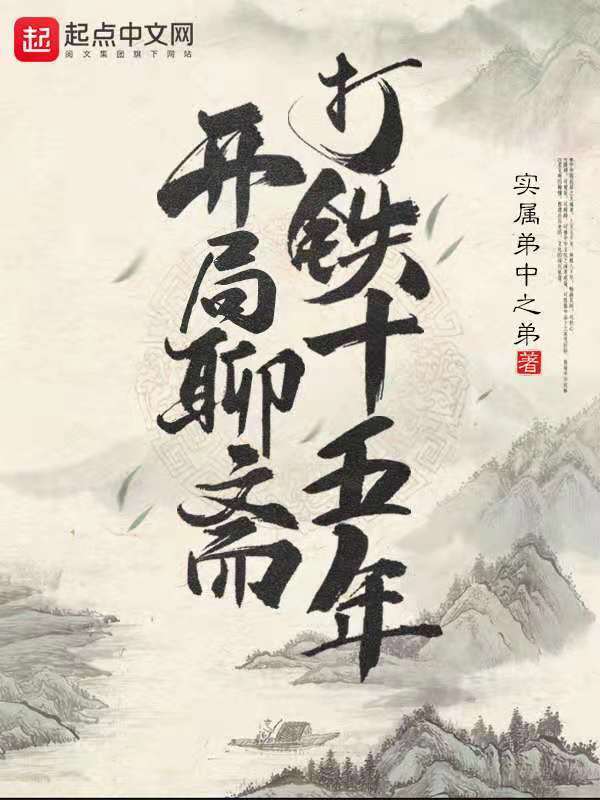 起 起点中文网
阅文集团旗下网站
打铁十五年
开局聊斋
实属弟中之弟 著